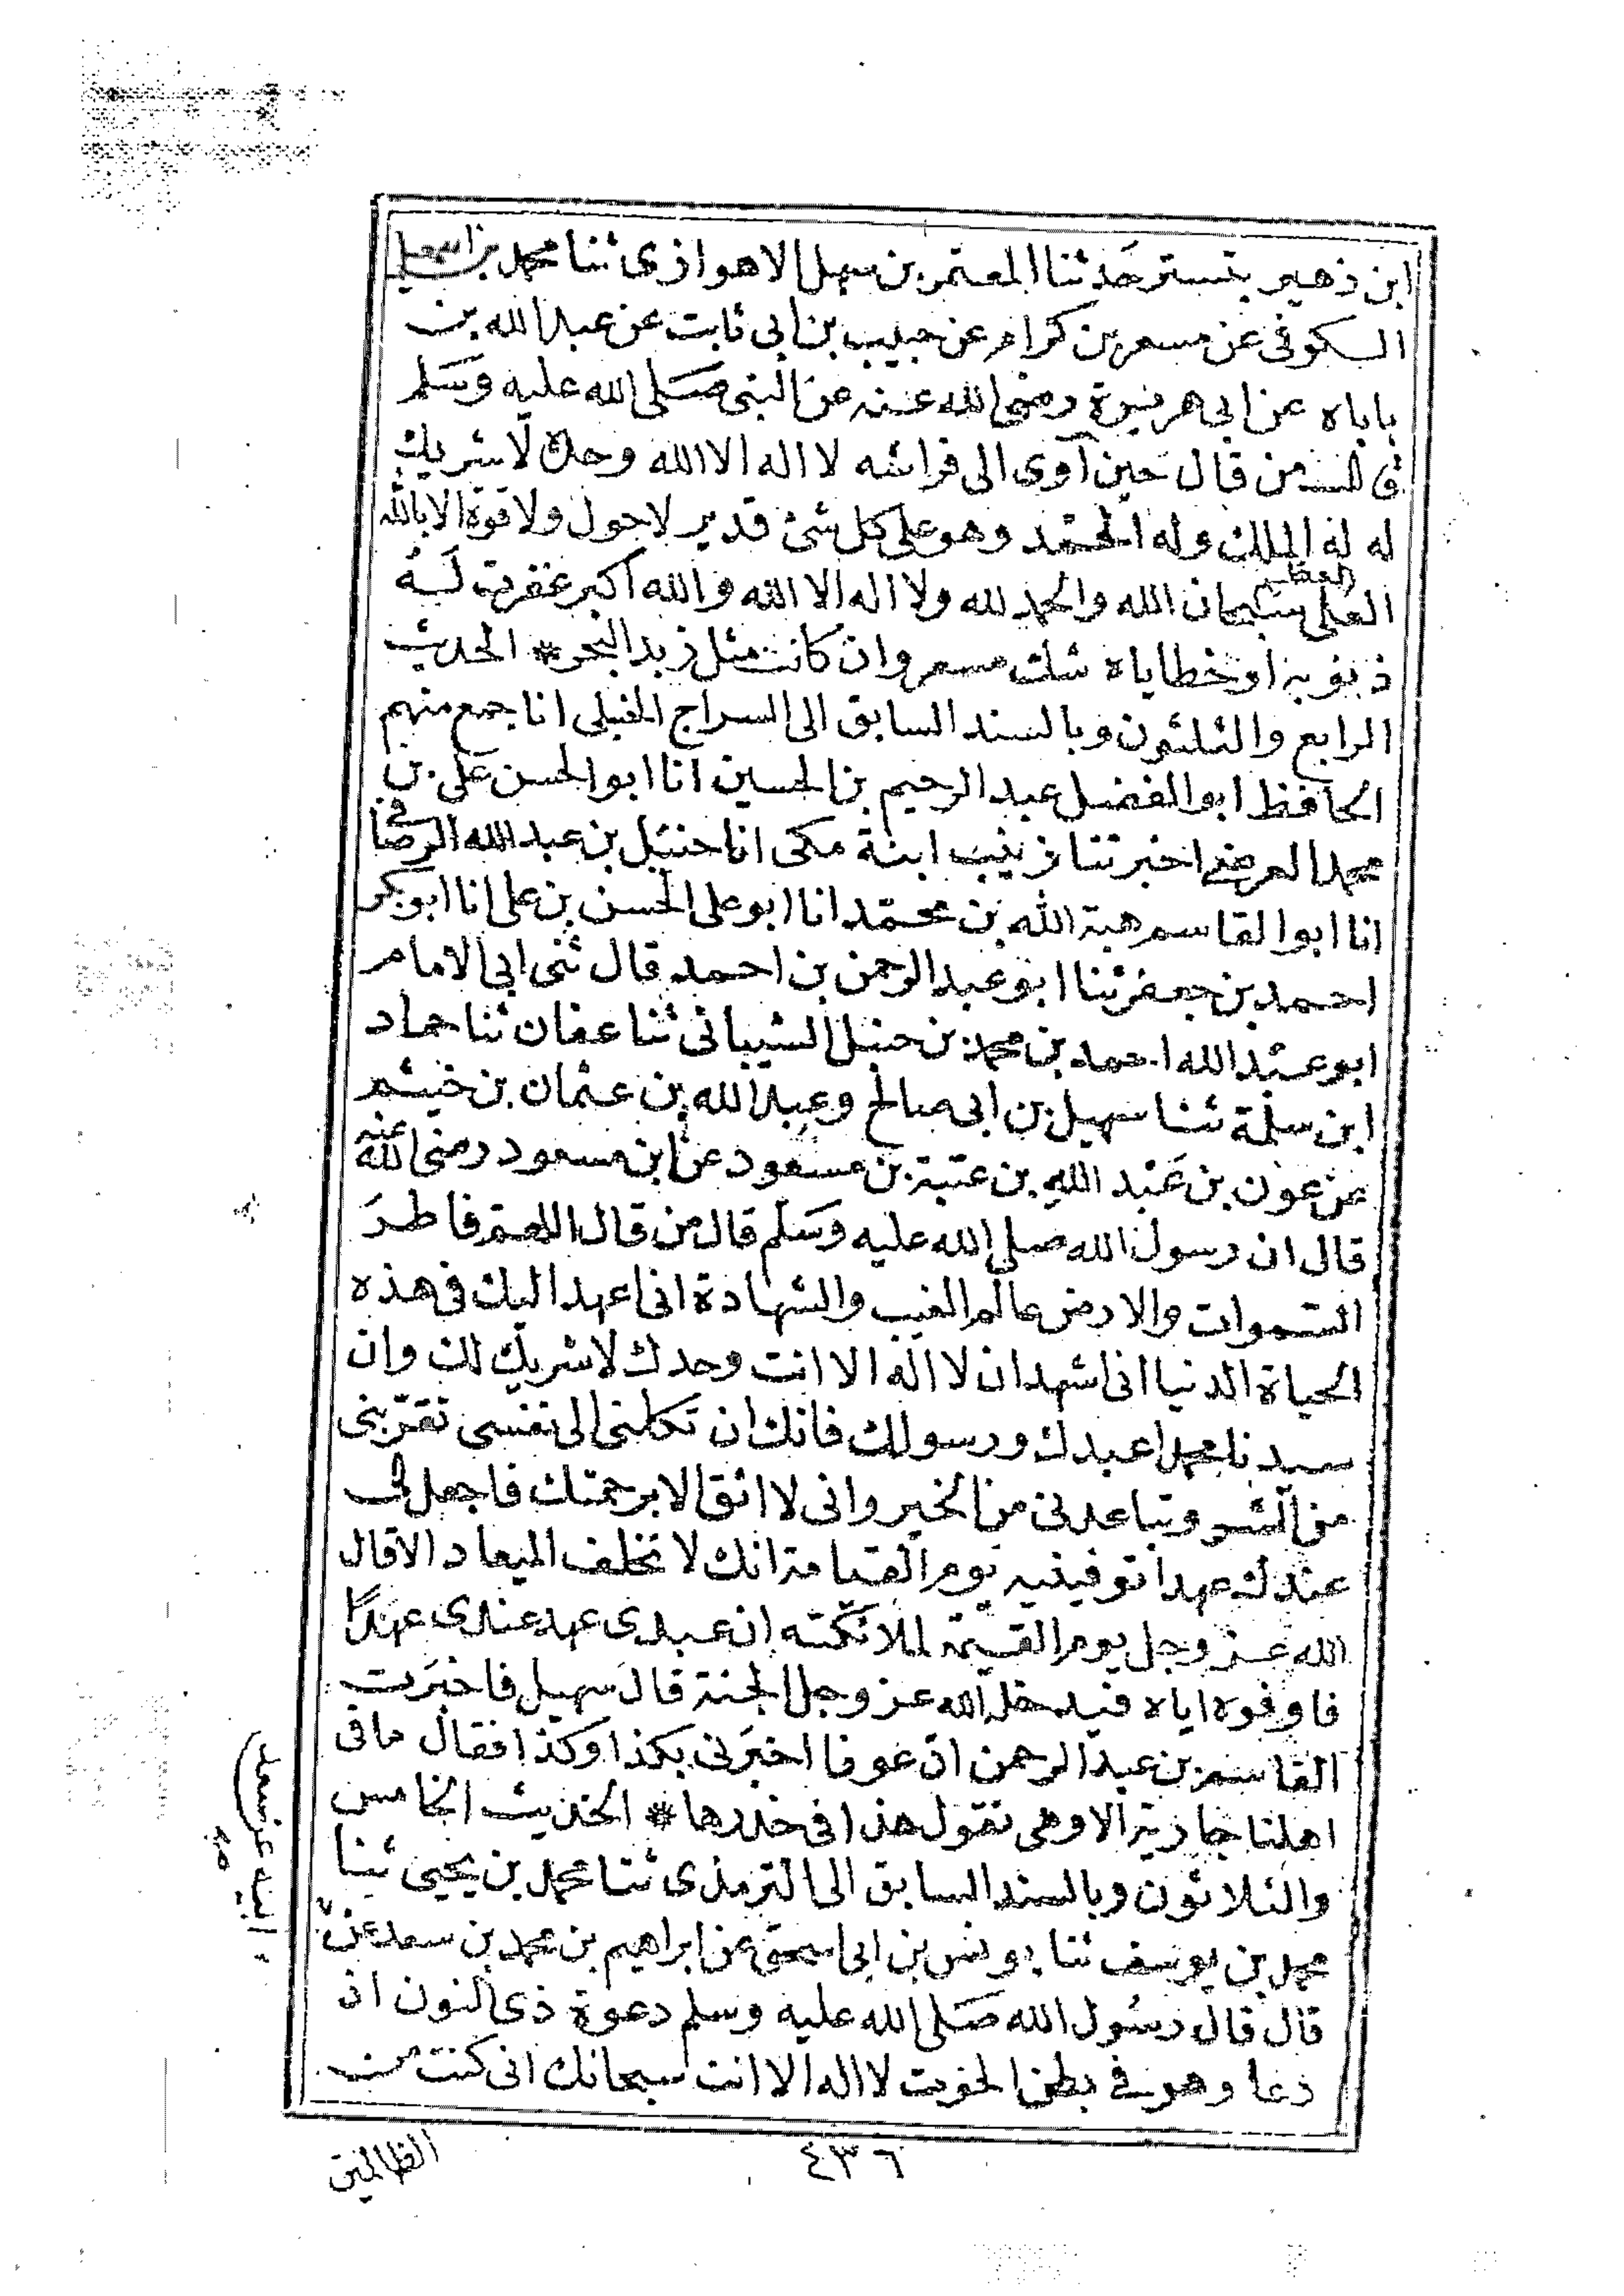 ابن زهير بتستر حدثنا المعتمر بن سهل الاهوازى ثنا محمد بن اسمعيل
الكوفى عن مسعر بن كرام عن حبيب بن ابى ثابت عن عبد الله بن
باباه عن ابى هريرة رضى الله عنه عن النبى صلى الله عليه وسلم
قال من قال حين آوى الى فراشه لا اله الا الله وحده لا شريك
له له الملك وله الحمد وهو على كل شئ قدير لا حول ولا قوة الا بالله
العلى العظيم سبحان الله والحمد لله ولا اله الا الله والله اكبر غفرت له
ذنوبه او خطاياه شك مسعر وان كانت مثل زبد البحر * الحديث
الرابع والثلثون وبالسند السابق الى السراج القبلى انا جمع منهم
الحافظ ابو الفضل عبد الرحيم بن الحسين انا ابو الحسن على بن
محمد العرضى اخبرتنا زينب ابنة مكى انا حنبل بن عبد الله الرصافى
انا ابو القاسم هبة الله بن محمد انا ابو على الحسن بن على انا ابو بكر
احمد بن جعفر ثنا ابو عبد الرحمن بن احمد قال ثنى ابى الامام
ابو عبد الله احمد بن محمد بن حنبل الشيبانى ثنا عفان ثنا حماد
ابن سلمة ثنا سهيل بن ابى صالح وعبد الله بن عثمان بن خيثم
عن عون بن عبد الله بن عتبة بن مسعود عن ابن مسعود رضى الله عنه
قال ان رسول الله صلى الله عليه وسلم قال من قال اللهم فاطر
السموات والارض عالم الغيب والشهادة انى اعهد اليك فى هذه
الحياة الدنيا انى اشهد ان لا اله الا انت وحدك لا شريك لك وان
سيدنا محمدا عبدك ورسولك فانك ان تكلنى الى نفسى تقربنى
من الشر وتباعدنى من الخير وانى لا اثق الا برحمتك فاجعل لى
عندك عهدا توفينيه يوم القيامة انك لا تخلف الميعاد الا قال
الله عز وجل يوم القيمة لملائكته ان عبدى عهد عندى عهدًا
فاوفوه اياه فيدخله الله عز وجل الجنة قال سهيل فاخبرت
القاسم بن عبد الرحمن ان عوفا اخبرنى بكذا وكذا فقال ما فى
اهلنا جارية الا وهى تقول هذا فى خدرها * الحديث الخامس
والثلاثون وبالسند السابق الى الترمذى ثنا محمد بن يحيى ثنا
محمد بن يوسف ثنا يونس بن ابى اسحق عن ابراهيم بن محمد بن سعد عن
ابيه عن سعد
صح
قال قال رسول الله صلى الله عليه وسلم دعوة ذى النون اذ
دعا وهو فى بطن الحوت لا اله الا انت سبحانك انى كنت من
الظالمين
٤٣٦